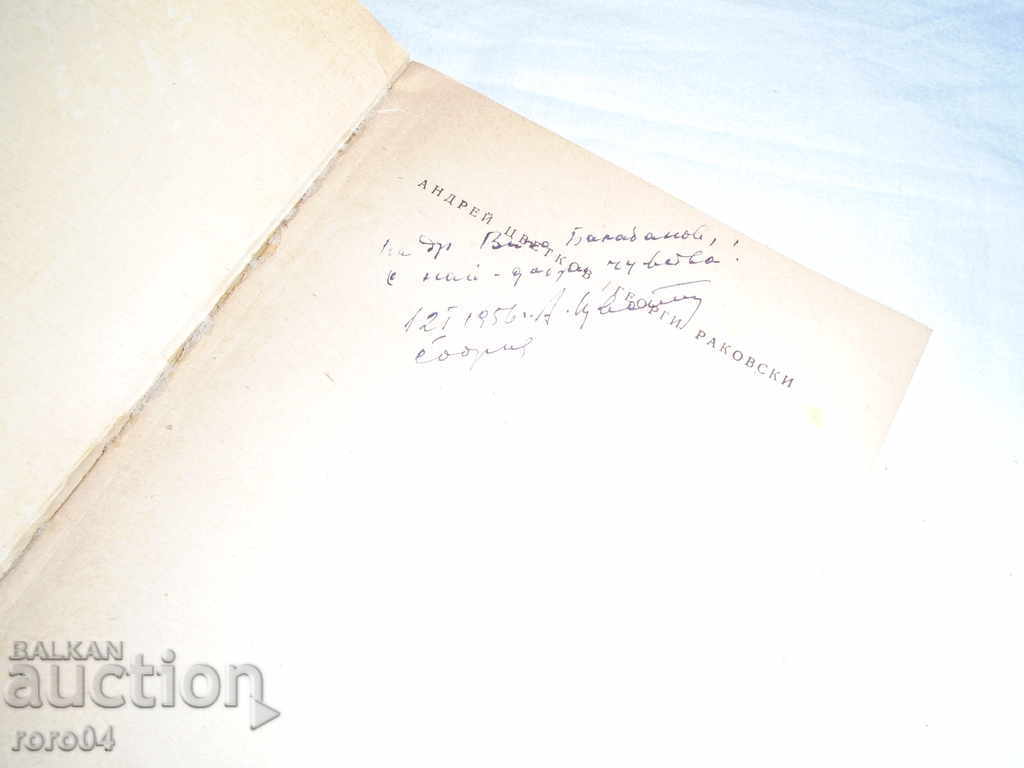 АНДРЕЙ ЦВЕТКОВ / ГЕОРГИ РАКОВСКИ
На др Балабанов,
с най-добри чувства!
12 I 1956 г. А. Цветков
София
BALKAN
auction
roro04